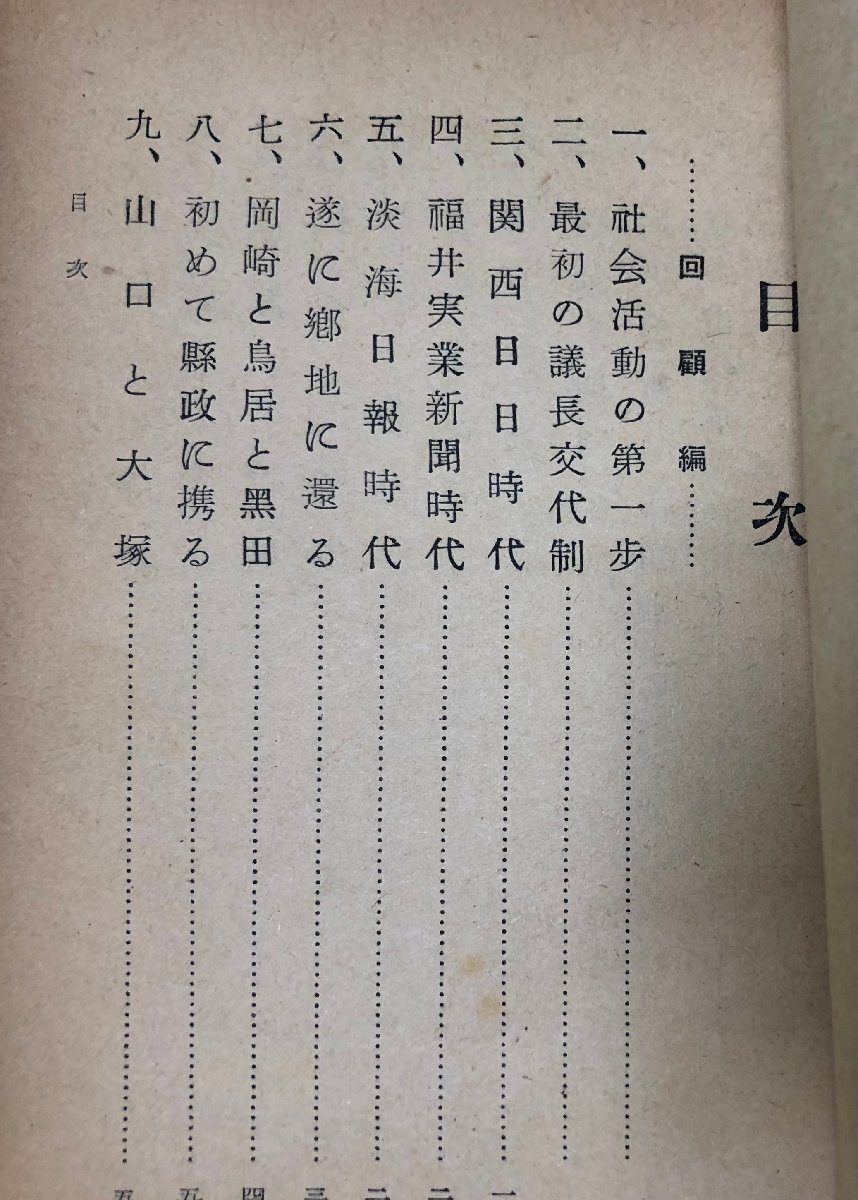 目次
………回顧編………
一、社会活動の第一步
二、最初の議長交代制
三、関西日日時代
四、福井実業新聞時代
五、淡海日報時代
六、遂に鄕地に還る
七、岡崎と鳥居と黑田
八、初めて縣政に携る
九、山口と大塚
目次